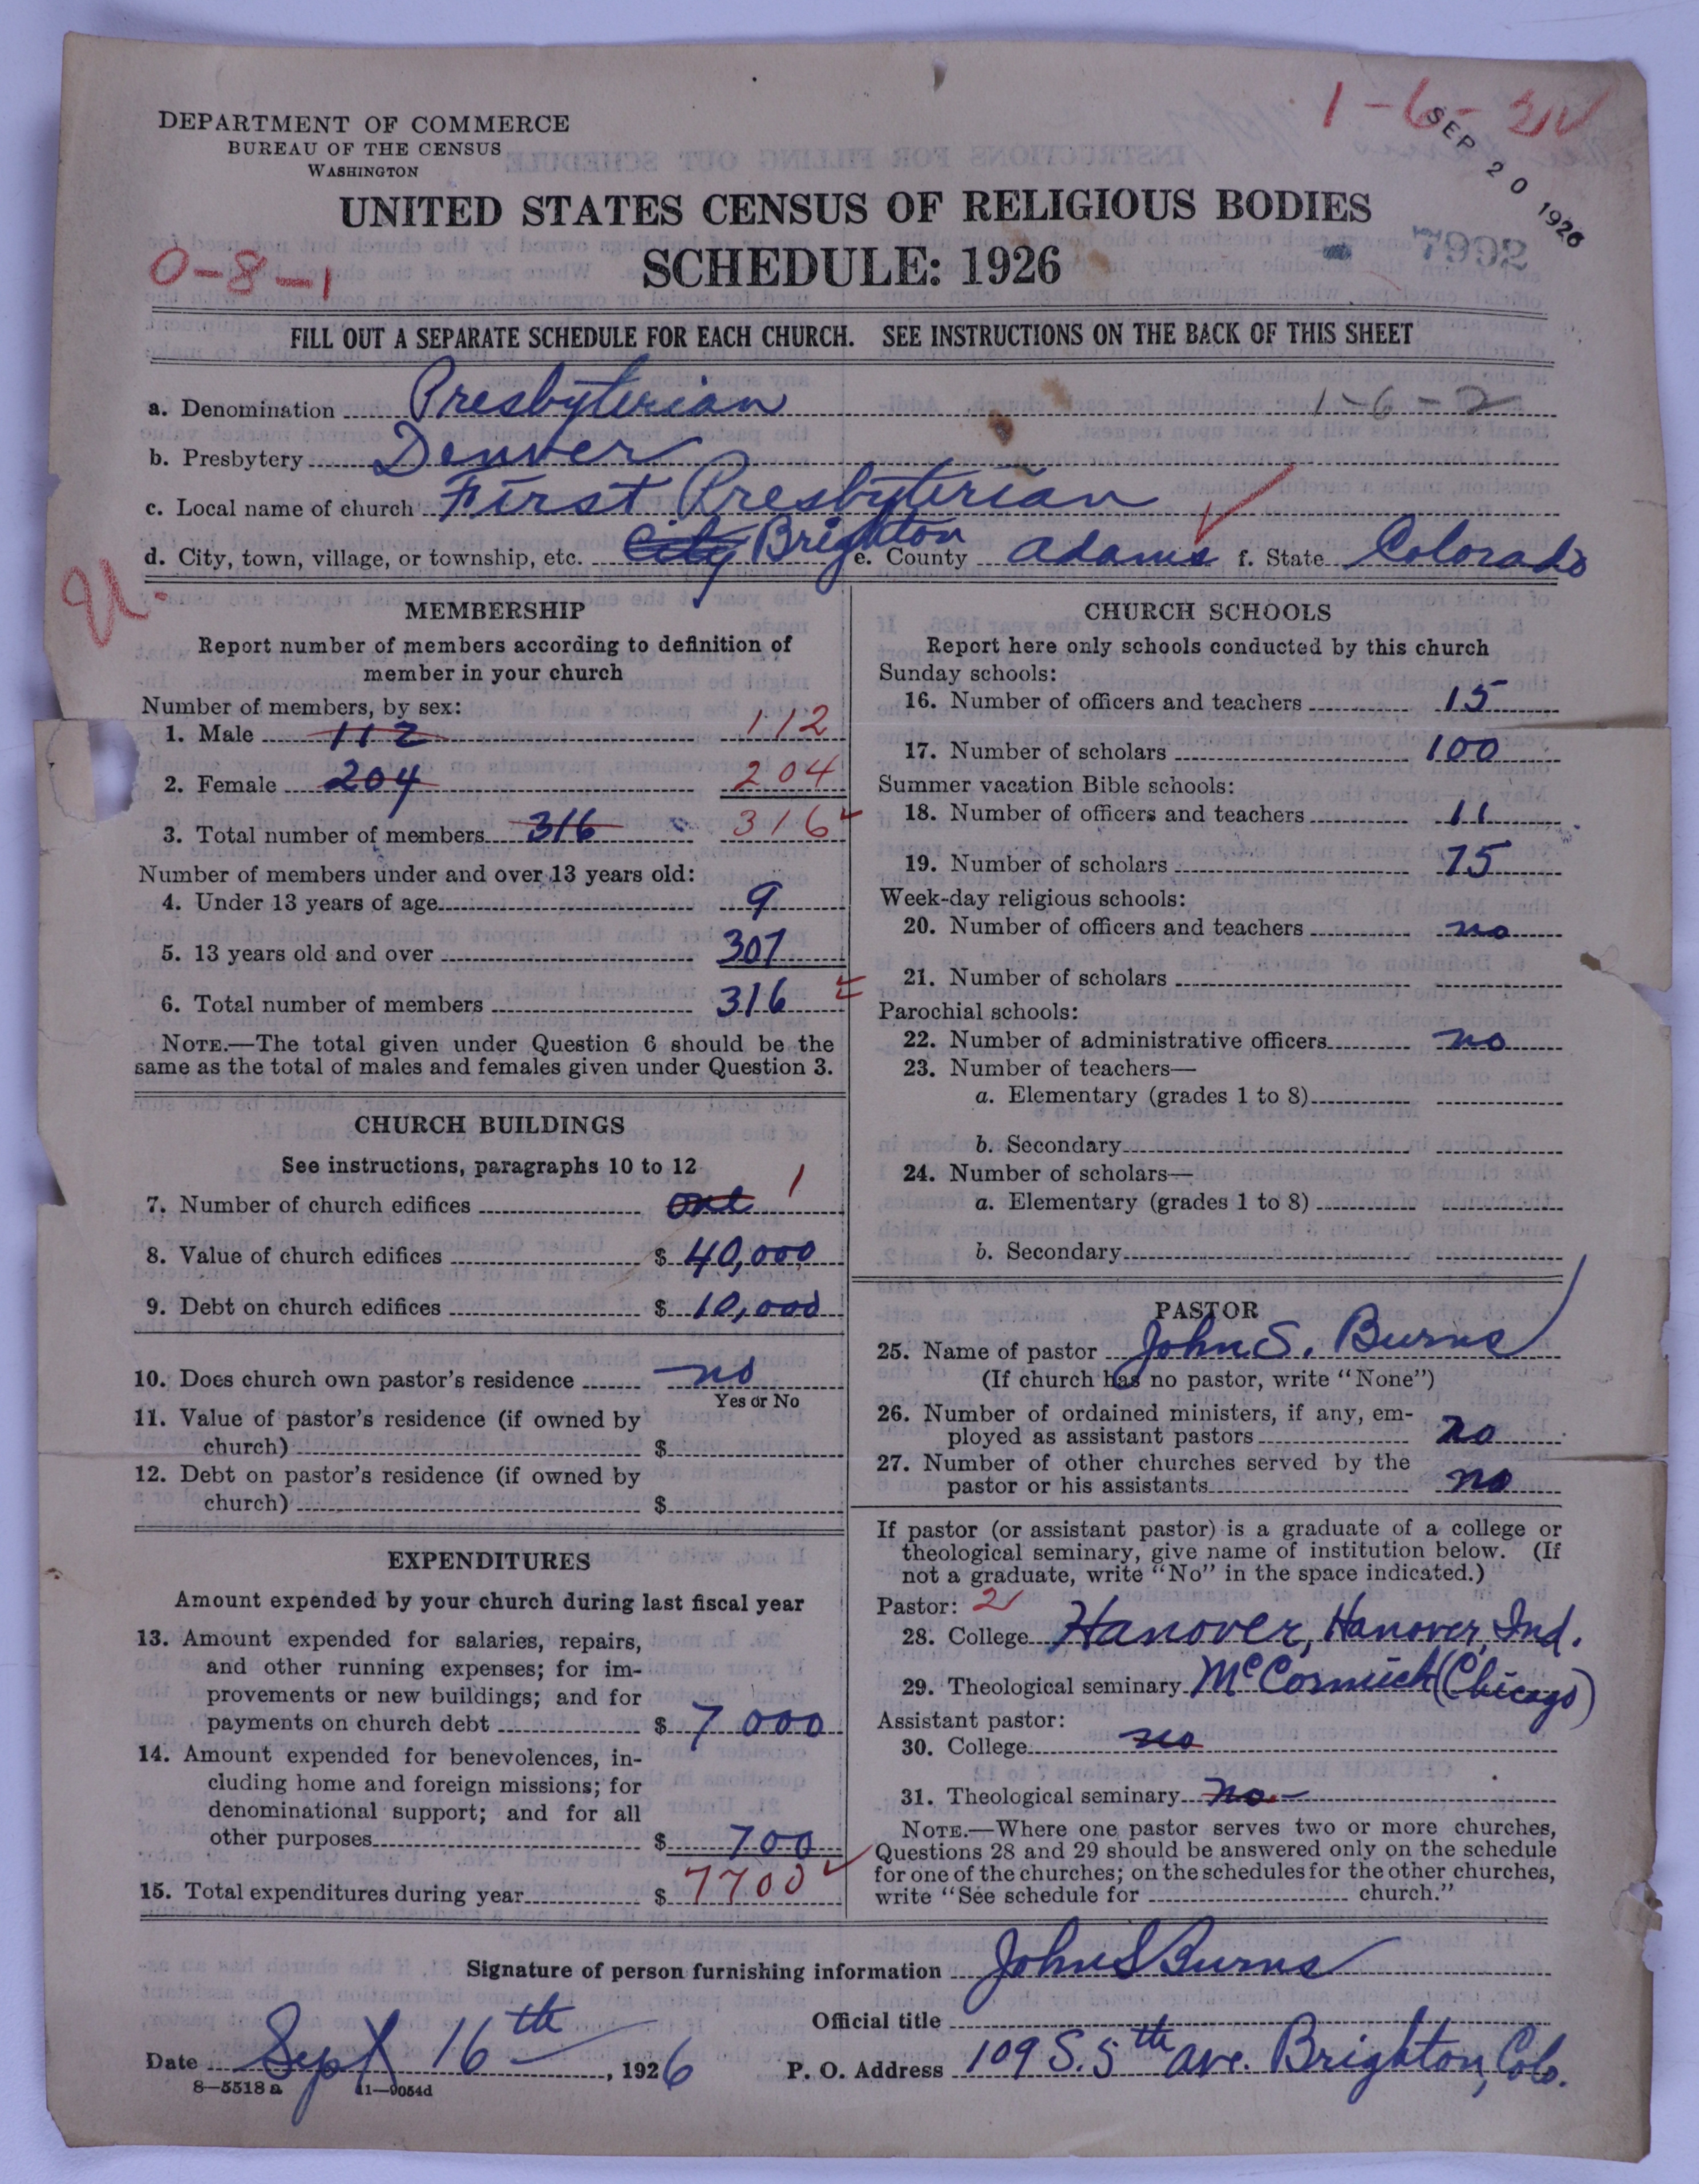 1-6-
SEP 20 1926
DEPARTMENT OF COMMERCE
BUREAU OF THE CENSUS
WASHINGTON
UNITED STATES CENSUS OF RELIGIOUS BODIES
SCHEDULE: 1926
7992
0-8-1
FILL OUT A SEPARATE SCHEDULE FOR EACH CHURCH. SEE INSTRUCTIONS ON THE BACK OF THIS SHEET
a. Denomination Presbyterian 1-6-2
b. Presbytery Denver
c. Local name of church First Presbyterian
d. City, town, village, or township, etc. City Brighton e. County Adams f. State Colorado
MEMBERSHIP
Report number of members according to definition of
member in your church
Number of members, by sex:
1. Male 112 112
2. Female 204 204
3. Total number of members 316 316
Number of members under and over 13 years old:
4. Under 13 years of age 9
5. 13 years old and over 307
6. Total number of members 316
NOTE.—The total given under Question 6 should be the
same as the total of males and females given under Question 3.
CHURCH BUILDINGS
See instructions, paragraphs 10 to 12
7. Number of church edifices one 1
8. Value of church edifices $ 40,000
9. Debt on church edifices $ 10,000
10. Does church own pastor's residence no
Yes or No
11. Value of pastor's residence (if owned by
church) $
12. Debt on pastor's residence (if owned by
church) $
EXPENDITURES
Amount expended by your church during last fiscal year
13. Amount expended for salaries, repairs,
and other running expenses; for im-
provements or new buildings; and for
payments on church debt $ 7 000
14. Amount expended for benevolences, in-
cluding home and foreign missions; for
denominational support; and for all
other purposes $ 700
15. Total expenditures during year $ 7700
CHURCH SCHOOLS
Report here only schools conducted by this church
Sunday schools:
16. Number of officers and teachers 15
17. Number of scholars 100
Summer vacation Bible schools:
18. Number of officers and teachers 11
19. Number of scholars 75
Week-day religious schools:
20. Number of officers and teachers no
21. Number of scholars
Parochial schools:
22. Number of administrative officers no
23. Number of teachers—
a. Elementary (grades 1 to 8)
b. Secondary
24. Number of scholars—
a. Elementary (grades 1 to 8)
b. Secondary
PASTOR
25. Name of pastor John S. Burns
(If church has no pastor, write "None")
26. Number of ordained ministers, if any, em-
ployed as assistant pastors no
27. Number of other churches served by the
pastor or his assistants no
If pastor (or assistant pastor) is a graduate of a college or
theological seminary, give name of institution below. (If
not a graduate, write "No" in the space indicated.)
Pastor: 2
28. College Hanover, Hanover, Ind.
29. Theological seminary McCormick (Chicago)
Assistant pastor:
30. College no
31. Theological seminary no
NOTE.—Where one pastor serves two or more churches,
Questions 28 and 29 should be answered only on the schedule
for one of the churches; on the schedules for the other churches,
write "See schedule for church."
Signature of person furnishing information John S Burns
Official title
Date Sept 16th, 1926 P. O. Address 109 S. 5th ave. Brighton, Colo.
8—5518 a 11—9054d